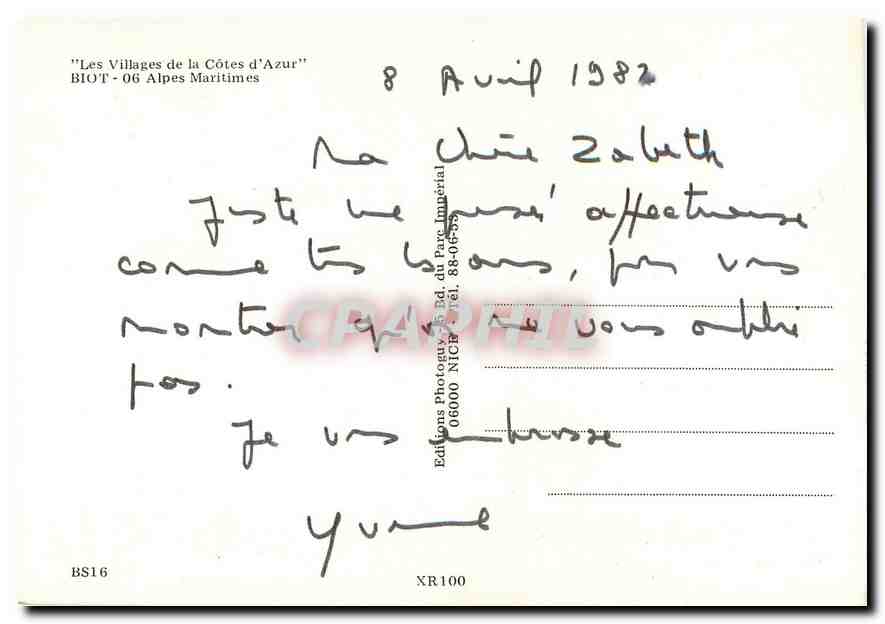 "Les Villages de la Côtes d'Azur"
BIOT - 06 Alpes Maritimes
8 Avril 1982
Ma Chère Zabeth
Juste une pensée affectueuse
comme tous les ans, pour vous
montrer qu'on ne vous oublie
pas.
Je vous embrasse
Yvonne
Editions Photoguy, 5 Bd. du Parc Impérial
06000 NICE - Tél. 88-06-53
CPAPHIL
BS16
XR100